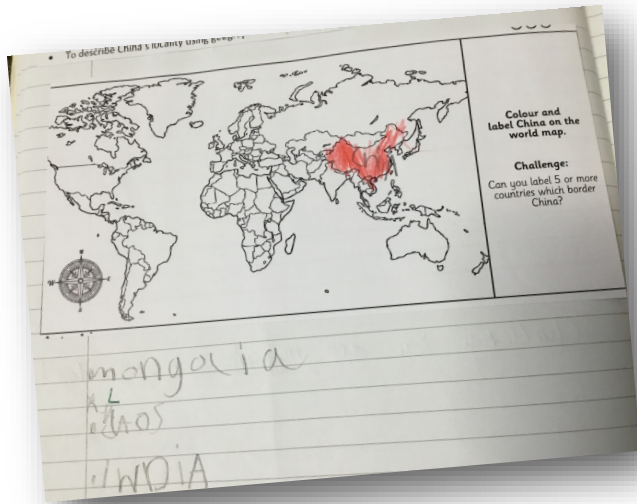 To describe China's locality using
Colour and
label China on the
world map.
Challenge:
Can you label 5 or more
countries which border
China?
mongolia
LAOS
INDIA